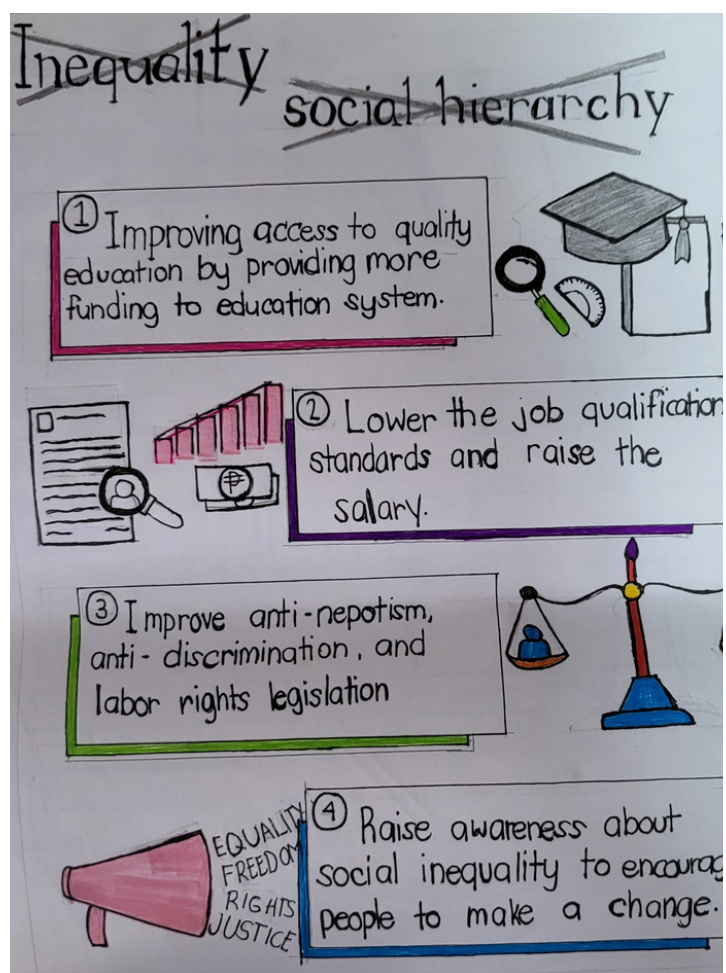 Inequality
social hierarchy
① Improving access to quality
education by providing more
funding to education system.
② Lower the job qualification
standards and raise the
salary.
₱
③ Improve anti-nepotism,
anti-discrimination, and
labor rights legislation
EQUALITY
FREEDOM
RIGHTS
JUSTICE
④ Raise awareness about
social inequality to encourag
people to make a change.